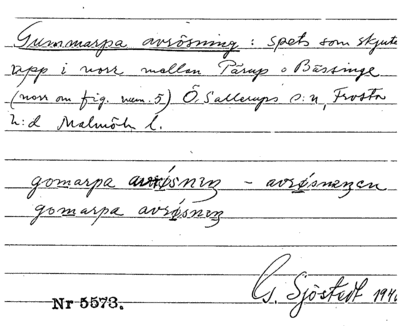 Gummarpa avrösning: spets som skjuter
upp i norr mellan Pärup o Bässinge
(norr om fig. num. 5) Ö. Sallerups s:n, Frosta
h:d Malmöh. l.
gomarpa avrøsnıŋ – avrøsneŋen
gomarpa avrøsneŋ
G. Sjöstedt 194
Nr 5573.